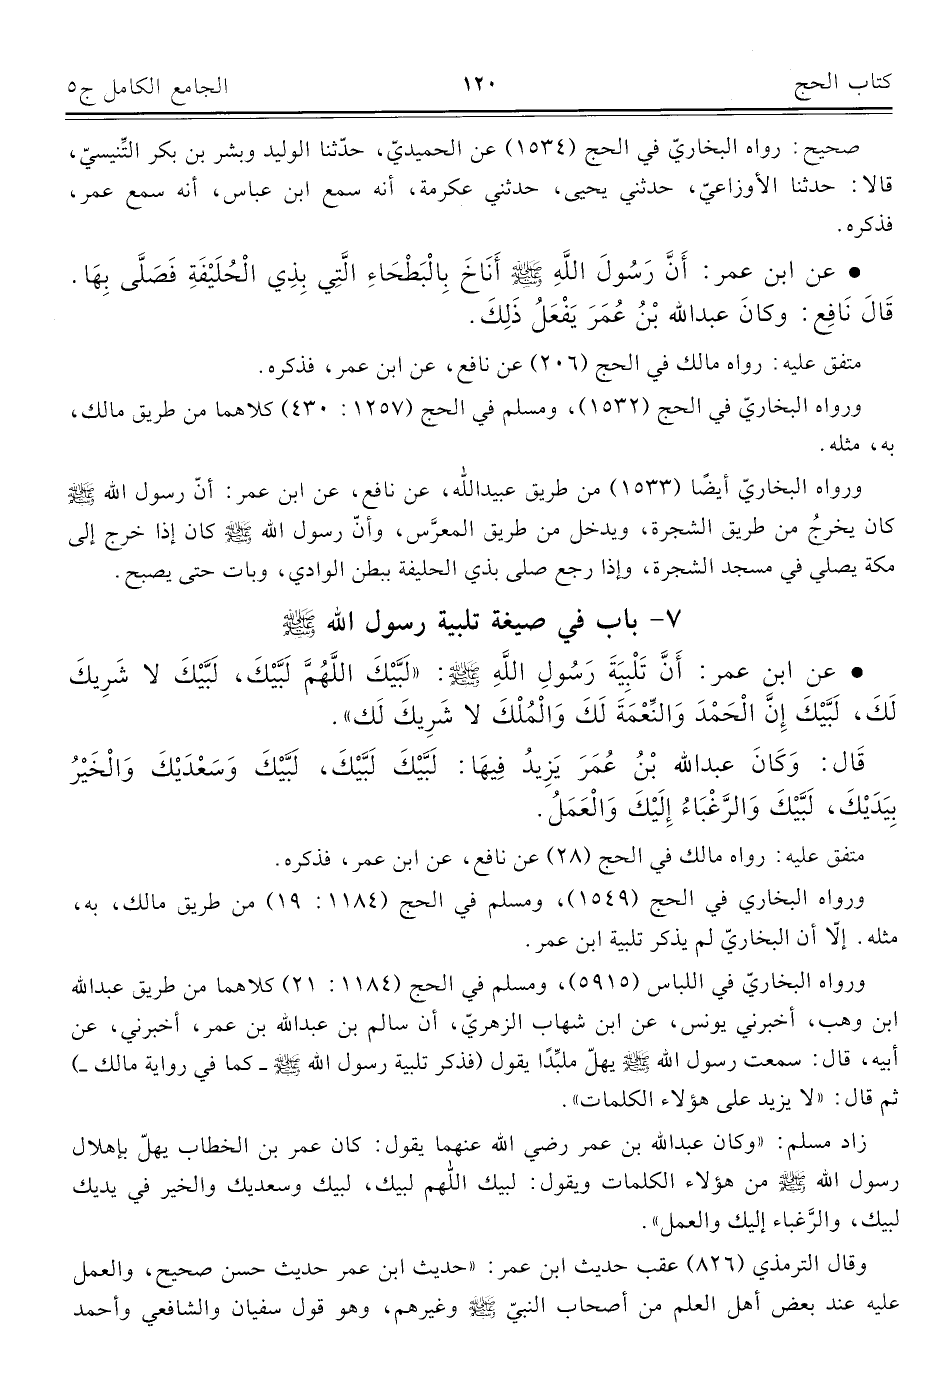 كتاب الحج ١٢٠ الجامع الكامل ج٥
صحيح: رواه البخاريّ في الحج (١٥٣٤) عن الحميديّ، حدّثنا الوليد وبشر بن بكر التِّنيسيّ،
قالا: حدثنا الأوزاعيّ، حدثني يحيى، حدثني عكرمة، أنه سمع ابن عباس، أنه سمع عمر،
فذكره.
• عن ابن عمر: أَنَّ رَسُولَ اللَّهِ ﷺ أَنَاخَ بِالْبَطْحَاءِ الَّتِي بِذِي الْحُلَيْفَةِ فَصَلَّى بِهَا.
قَالَ نَافِع: وكانَ عبدالله بْنُ عُمَرَ يَفْعَلُ ذَلِكَ.
متفق عليه: رواه مالك في الحج (٢٠٦) عن نافع، عن ابن عمر، فذكره.
ورواه البخاريّ في الحج (١٥٣٢)، ومسلم في الحج (١٢٥٧: ٤٣٠) كلاهما من طريق مالك،
به، مثله.
ورواه البخاريّ أيضًا (١٥٣٣) من طريق عبيدالله، عن نافع، عن ابن عمر: أنّ رسول الله ﷺ
كان يخرجُ من طريق الشجرة، ويدخل من طريق المعرَّس، وأنّ رسول الله ﷺ كان إذا خرج إلى
مكة يصلي في مسجد الشجرة، وإذا رجع صلى بذي الحليفة ببطن الوادي، وبات حتى يصبح.
٧- باب في صيغة تلبية رسول الله ﷺ
• عن ابن عمر: أَنَّ تَلْبِيَةَ رَسُولِ اللَّهِ ﷺ: «لَبَّيْكَ اللَّهُمَّ لَبَّيْكَ، لَبَّيْكَ لا شَرِيكَ
لَكَ، لَبَّيْكَ إِنَّ الْحَمْدَ وَالنِّعْمَةَ لَكَ وَالْمُلْكَ لا شَرِيكَ لَك».
قَالَ: وَكَانَ عبدالله بْنُ عُمَرَ يَزِيدُ فِيهَا: لَبَّيْكَ لَبَّيْكَ، لَبَّيْكَ وَسَعْدَيْكَ وَالْخَيْرُ
بِيَدَيْكَ، لَبَّيْكَ وَالرَّغْبَاءُ إِلَيْكَ وَالْعَمَلُ.
متفق عليه: رواه مالك في الحج (٢٨) عن نافع، عن ابن عمر، فذكره.
ورواه البخاري في الحج (١٥٤٩)، ومسلم في الحج (١١٨٤: ١٩) من طريق مالك، به،
مثله. إلّا أن البخاريّ لم يذكر تلبية ابن عمر.
ورواه البخاريّ في اللباس (٥٩١٥)، ومسلم في الحج (١١٨٤: ٢١) كلاهما من طريق عبدالله
ابن وهب، أخبرني يونس، عن ابن شهاب الزهريّ، أن سالم بن عبدالله بن عمر، أخبرني، عن
أبيه، قال: سمعت رسول الله ﷺ يهلّ ملبِّدًا يقول (فذكر تلبية رسول الله ﷺ ـ كما في رواية مالك ـ)
ثم قال: «لا يزيد على هؤلاء الكلمات».
زاد مسلم: «وكان عبدالله بن عمر رضي الله عنهما يقول: كان عمر بن الخطاب يهلّ بإهلال
رسول الله ﷺ من هؤلاء الكلمات ويقول: لبيك اللّٰهم لبيك، لبيك وسعديك والخير في يديك
لبيك، والرَّغباء إليك والعمل».
وقال الترمذي (٨٢٦) عقب حديث ابن عمر: «حديث ابن عمر حديث حسن صحيح، والعمل
عليه عند بعض أهل العلم من أصحاب النبيّ ﷺ وغيرهم، وهو قول سفيان والشافعي وأحمد